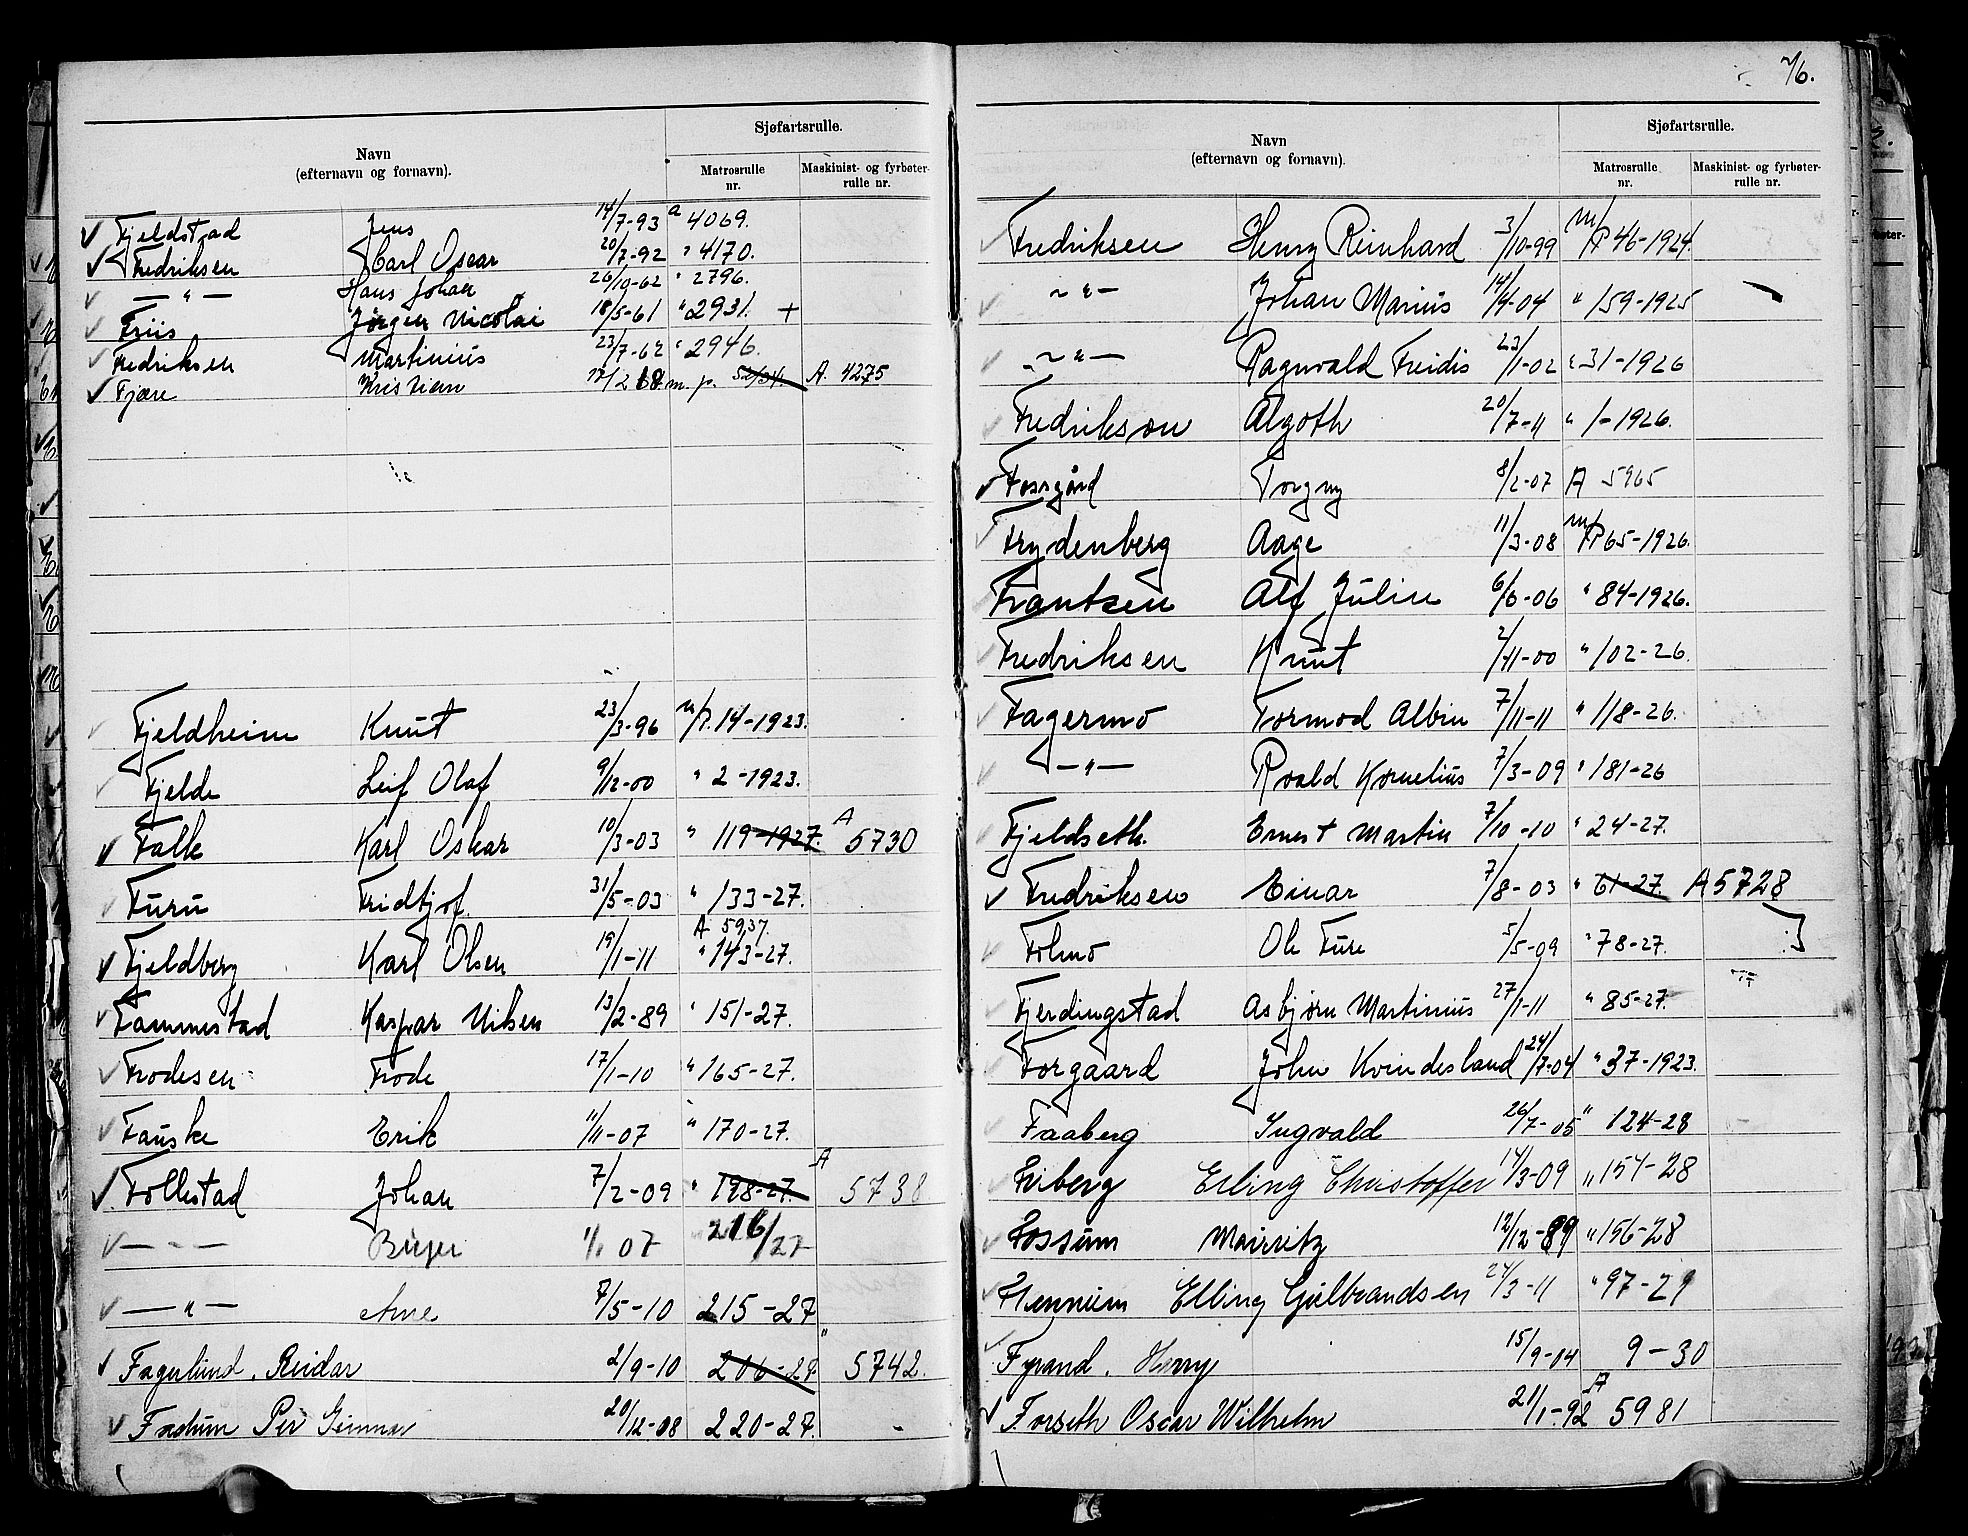 76.
Navn
(efternavn og fornavn).
Sjøfartsrulle.
Matrosrulle nr.
Maskinist- og fyrbøter-rulle nr.
Fjeldstad Jens 14/7-93 a 4069.
Fredriksen Carl Oscar 20/7-92 " 4170.
—"— Hans Johan 26/10-62 " 2796.
Friis Jørgen Nicolai 18/5-61 " 2931. +
Fredriksen Martinius 23/7-62 " 2946.
Fjære Kristian m. p. 52/34. A. 4275
Fjeldheim Knut 23/3-96 m/P. 14-1923.
Fjelde Leif Olaf 9/12-00 " 2-1923.
Falk Karl Oskar 10/3-03 " 119-1927. A 5730
Furu Fridtjof 31/5-03 " 133-27.
A 5937.
Fjeldberg Karl Olsen 19/1-11 " 143-27.
Fammestad Kaspar Nilsen 13/2-89 " 151-27.
Frodesen Frode 17/1-10 " 165-27.
Fauske Erik 11/11-07 " 170-27.
Follestad Johan 7/2-09 " 198-27. A 5738
—"— Birger 1/1 07 216/27
—"— Arne 7/5-10 215-27
Fagerlund, Reidar 2/9-10 206-27. " 5742.
Fastum Per Gunnar 20/12-08 220-27. -
Navn
(efternavn og fornavn).
Sjøfartsrulle.
Matrosrulle nr.
Maskinist- og fyrbøter-rulle nr.
Fredriksen Henry Reinhard 3/10-99 m/P 46-1924.
—"— Johan Marius 14/4-04 " 159-1925
—"— Ragnvald Freidis 23/1-02 " 31-1926
Fredrikson Algoth 20/7-11 " 1-1926.
Fossgård Torgny 8/2-07 A 5965
Frydenberg Aage 11/3-08 m/P 65-1926.
Frantsen Alf Julin 6/6-06 " 84-1926.
Fredriksen Knut 2/11-00 " 102-26.
Fagermo Tormod Albin 7/11-11 " 118-26.
—"— Roald Kornelius 7/3-09 " 181-26
Fjeldseth. Ernest Martin 7/10-10 " 24-27.
Fredriksen Einar 7/8-03 " 61-27. A 5728
Folmo Ole Ture 5/5-09 " 78-27.
Fjerdingstad Asbjørn Martinius 27/1-11 " 85-27.
Forgaard John Kvindesland 24/7-04 " 37-1923.
Faaberg Ingvald 26/7-05 " 124-28
Friberg Erling Christoffer 14/3-09 " 154-28
Fossum Mauritz 12/12-89 " 156-28
Flennum Elling Gulbrandsen 24/3-11 " 97-29
Fyrand, Harry 15/9-04 9-30
Forseth Oscar Wilhelm 21/1-92 A 5981